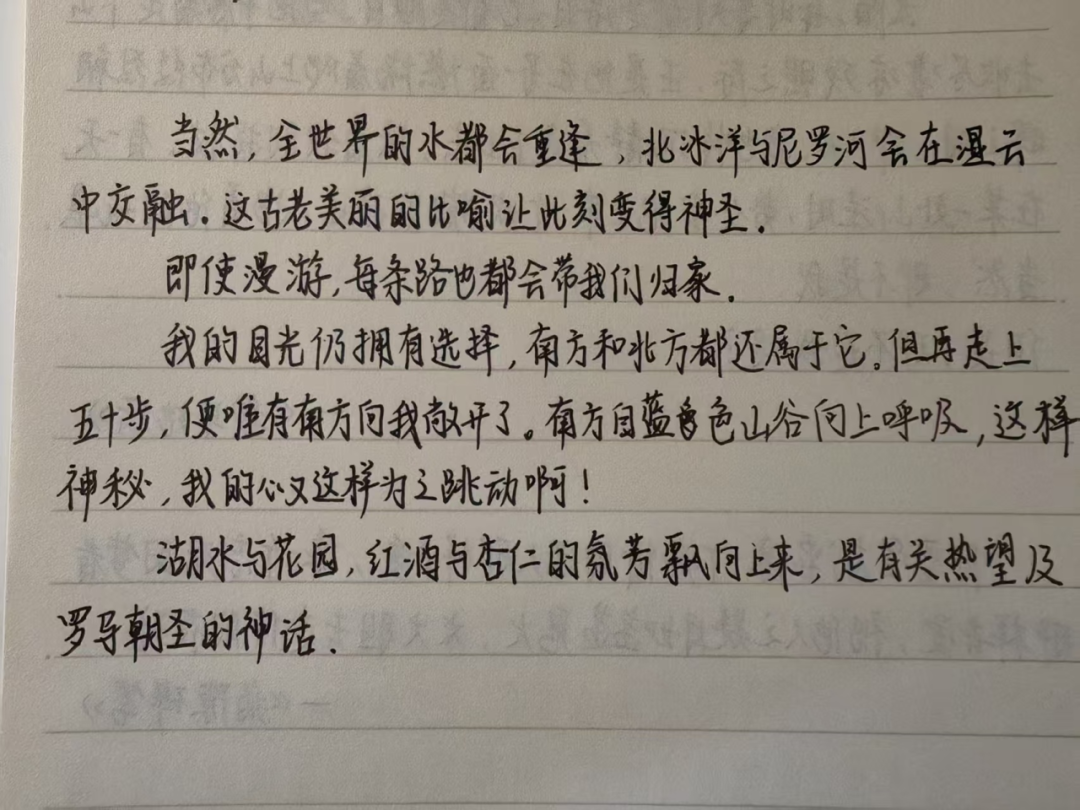 当然，全世界的水都会重逢，北冰洋与尼罗河会在湿云
中交融。这古老美丽的比喻让此刻变得神圣。
即使漫游，每条路也都会带我们归家。
我的目光仍拥有选择，南方和北方都还属于它。但再走上
五十步，便唯有南方向我敞开了。南方自蓝色山谷向上呼吸，这样
神秘，我的心又这样为之跳动啊！
湖水与花园，红酒与杏仁的氛芳飘向上来，是有关热望及
罗马朝圣的神话.